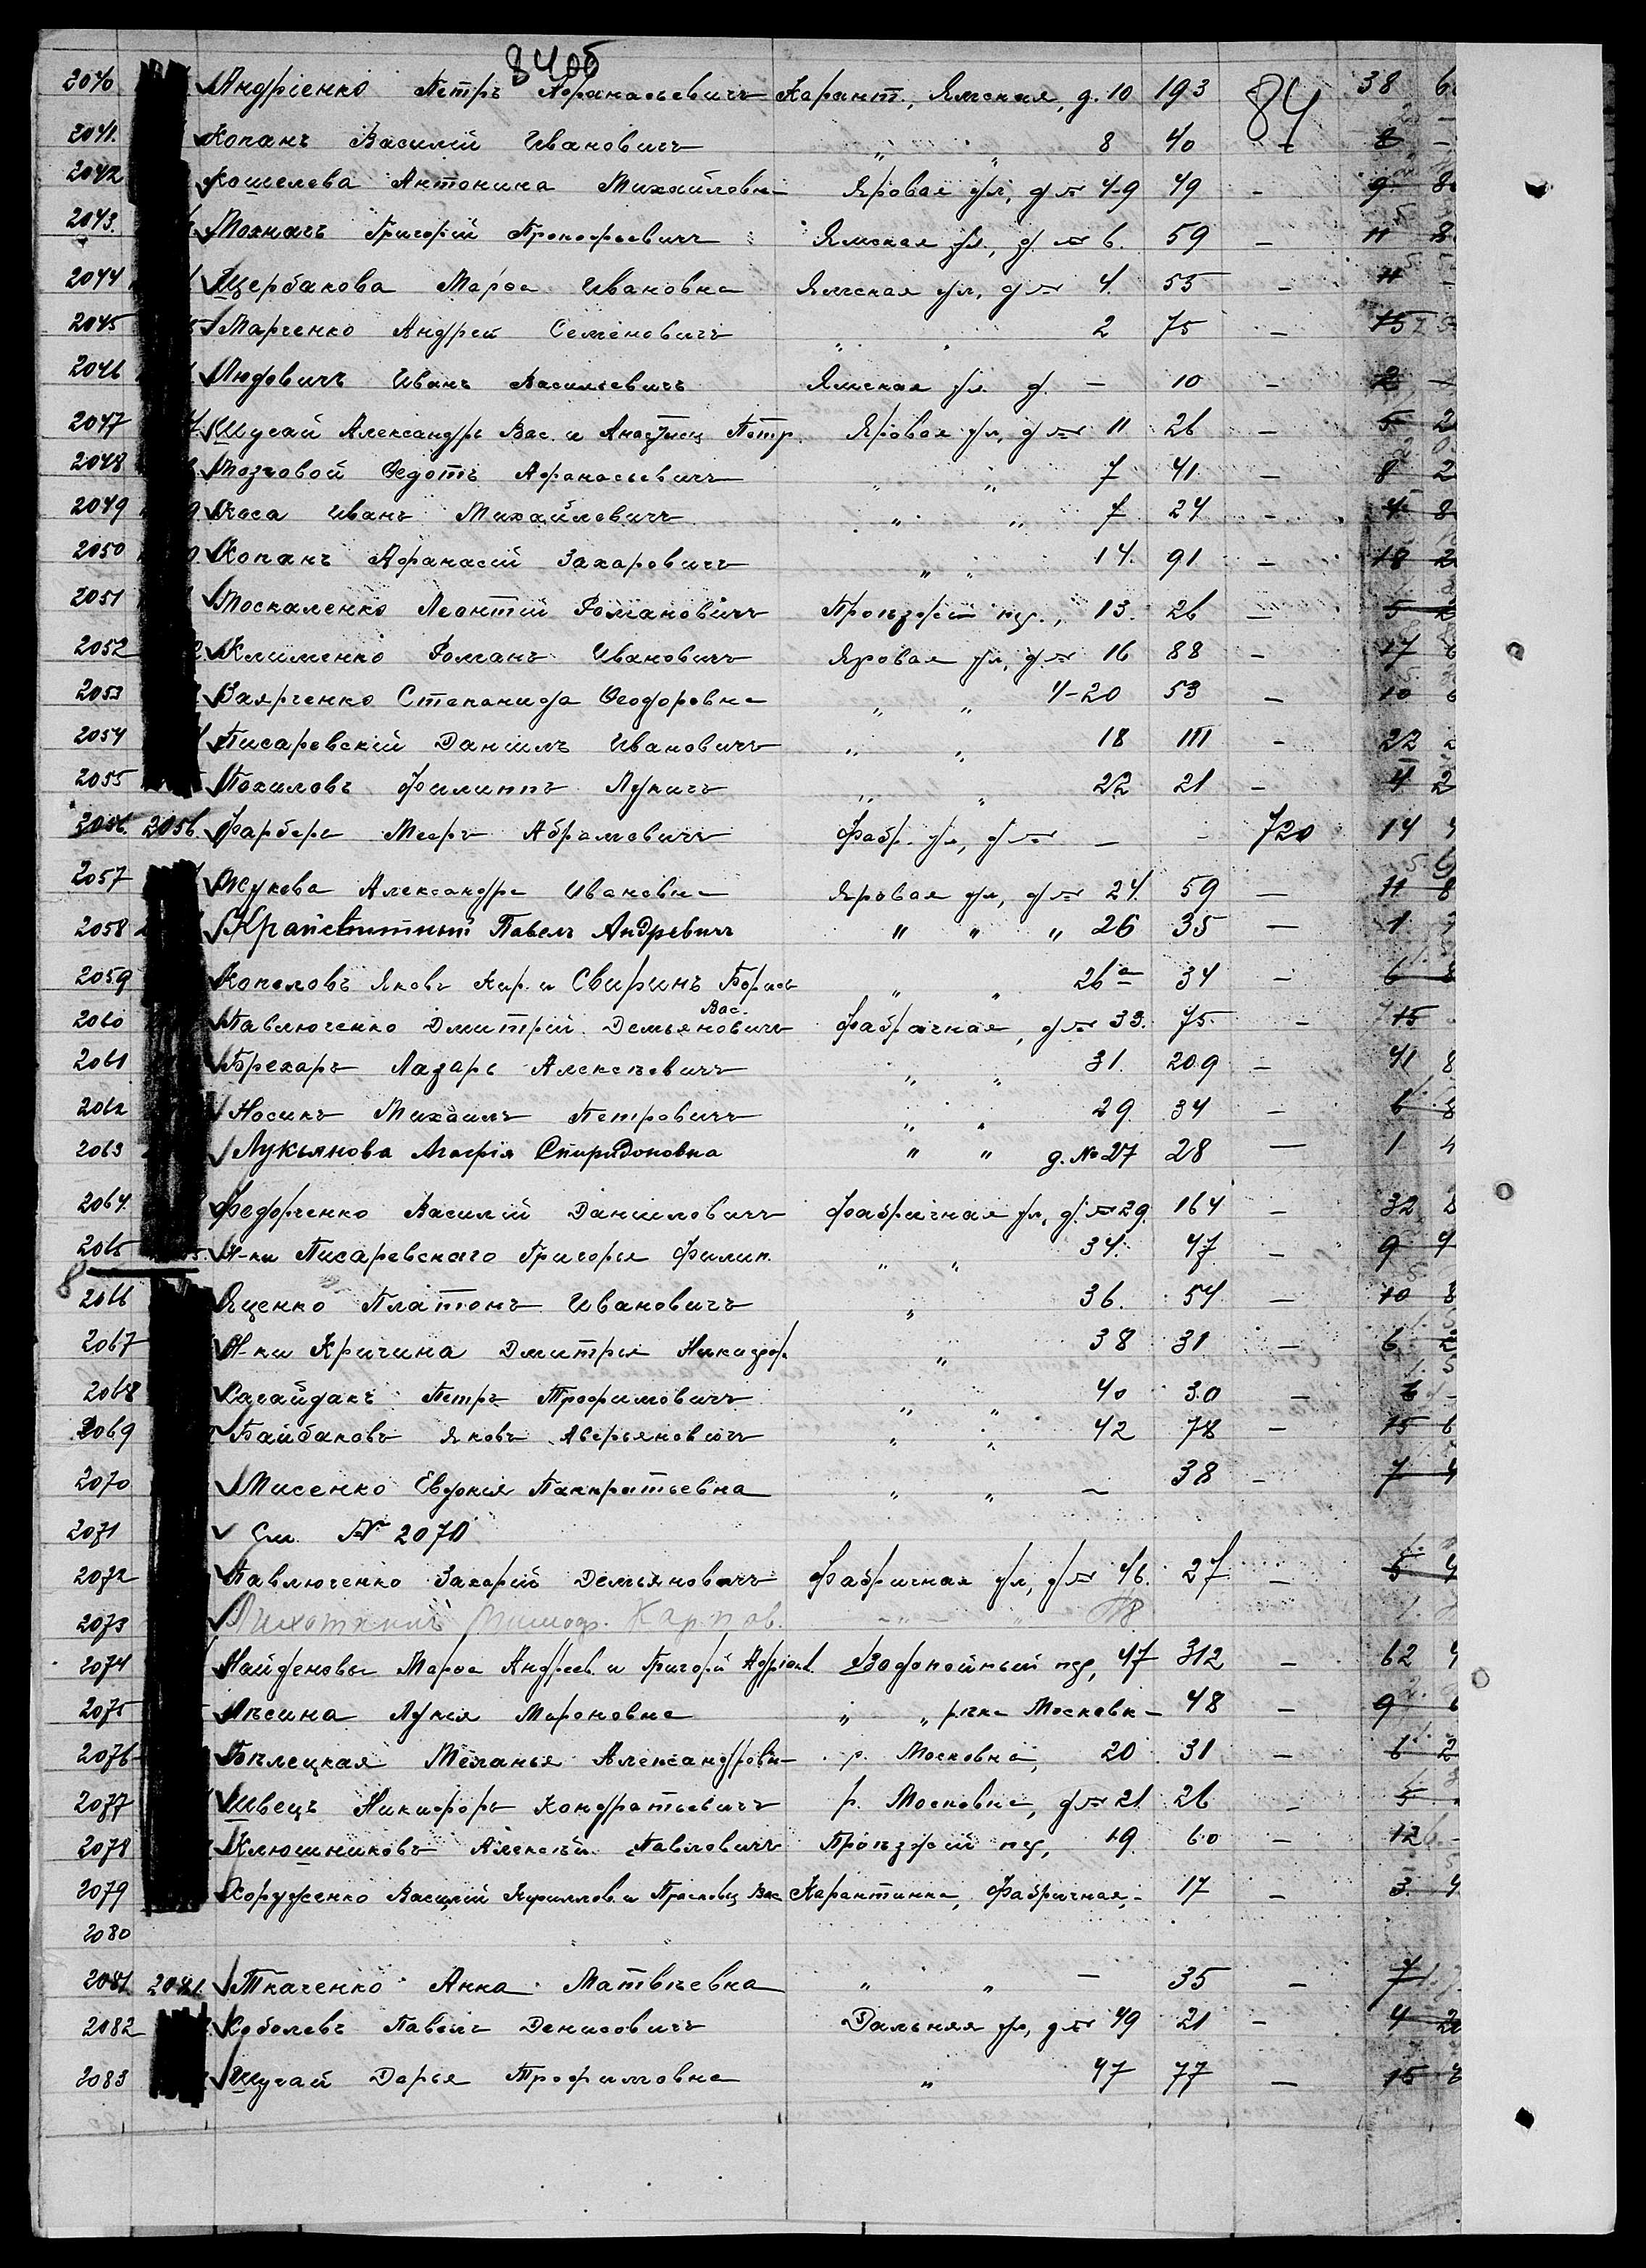 84об
2040 Андріенко Петръ Афанасьевичъ Карант., Ямская, д. 10 193 84 38
2041. Копанъ Василій Ивановичъ " " 8 40 8 -
2042 Кошелева Антонина Михайловна Яровая ул, д № 4-9 49 - 9 8
2043. Григорій Прокофьевичъ Ямская ул, д. № 6. 59 - 11 8
2044 Щербакова Марѳа Ивановна Ямская ул, д № 4. 55 - 11 -
2045 Марченко Андрей Семеновичъ " " 2 75 - 15
2046 Иванъ Васильевичъ Ямская ул д. - 10 - 2 -
2047 Александръ Вас. и Петр. Яровая ул, д № 11 26 - 5 2
2048 Мозговой Ѳедотъ Афанасьевичъ " " 7 41 - 8 2
2049 Иванъ Михайловичъ " " 7 24 - 4 8
2050 Копанъ Афанасій Захаровичъ " " 14. 91 - 18 2
2051 Москаленко Леонтій Романовичъ Проѣзжій пер., 13. 26 - 5 2
2052 Клименко Романъ Ивановичъ Яровая ул, д № 16 88 - 17
2053 Ваярченко Степанида Ѳеодоровна " " 4-20 53 - 10 6
2054 Писаревскій Даніилъ Ивановичъ " " 18 111 - 22 2
2055 Похиловъ Филиппъ Лукичъ " " 22 21 - 4 2
2056. 2056. Фарберъ Мееръ Абрамовичъ Фабр. ул, д № - - 720 14 4
2057 Жукова Александра Ивановна Яровая ул, д № 24. 59 - 11 8
2058 Павелъ Андревичъ " " " 26 35 - 1
2059 Копыловъ Яковъ Кир. и Свиринъ Борисъ Вас. " " 26а 34 - 6 8
2060 Павлюченко Дмитрій Демьяновичъ Фабричная, д № 33. 75 - 15
2061 Брехаръ Лазарь Алексѣевичъ " " 31. 209 - 41 8
2062 Носикъ Михаилъ Петровичъ " " 29. 34 - 6 8
2063 Лукьянова Агафія Спиридоновна " " д. № 27 28 - 1 4
2064. Федорченко Василій Данииловичъ Фабричная ул, д. № 29. 164 - 32 8
2065 Н-ки Писаревскаго Григорія Филип. " " 34. 47 - 9 4
8
2066 Яценко Платонъ Ивановичъ " 36. 54 - 10 8
2067 Н-ки Кричина Дмитрія Никифор. " 38 31 - 6 2
2068 Сагайдакъ Петръ Трофимовичъ " " 40 30 - 6 -
2069 Байбаковъ Яковъ Аверьяновичъ " " 42 78 - 15 6
2070 Мисенко Евдокія Панкратьевна " " - 38 - 7 4
2071 См. № 2070
2072 Павлюченко Захарій Демьяновичъ Фабричная ул, д № 46. 27 - 5 4
2073 Карпов.
2074 Найденовы Марѳа Андреев. и Григорій Водопойный пер, 47 312 - 62 4
2075 Лѣсина Лукія Мироновна " " рѣка Московка - 48 - 9 6
2076 Бѣлецкая Меланья Александровна р. Московка, 20 31 - 6 2
2077 Швецъ Никифоръ Кондратьевичъ р. Московка, д № 21 26 - 5
2078 Клюшниковъ Алексѣй Павловичъ Проѣзжій пер, 19 60 - 12 -
2079 Хоруженко Василій Кириллов. и Вас Карантинка, Фабричная, - 17 - 3 4
2080
2081. 2081. Ткаченко Анна Матвѣевна " " - 35 - 7
2082 Коболевъ Павелъ Денисовичъ Дальняя ул, д № 49 21 - 4 20
2083 Дарья Трофимовна " 47 77 - 15